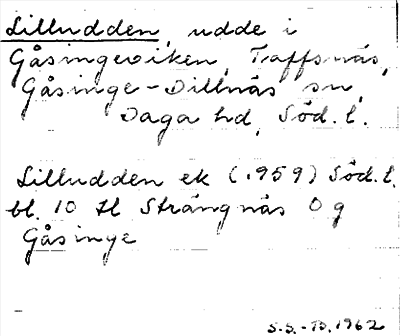 Lilludden, udde i
Gåsingeviken, Taffsnäs,
Gåsinge-Dillnäs sn,
Daga hd, Söd. l.
Lilludden ek (1959) Söd. l.
bl. 10 tl Strängnäs Og
Gåsinge
S.S.-D. 1962